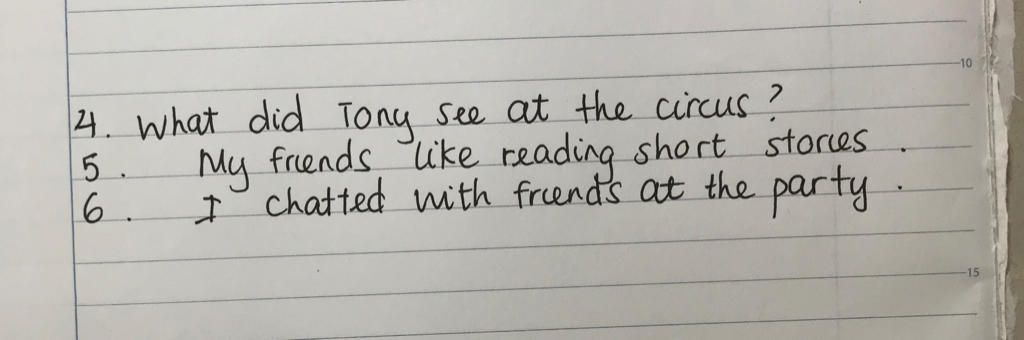 10
4. What did Tony see at the circus?
5. My friends like reading short stories.
6. I chatted with friends at the party.
15